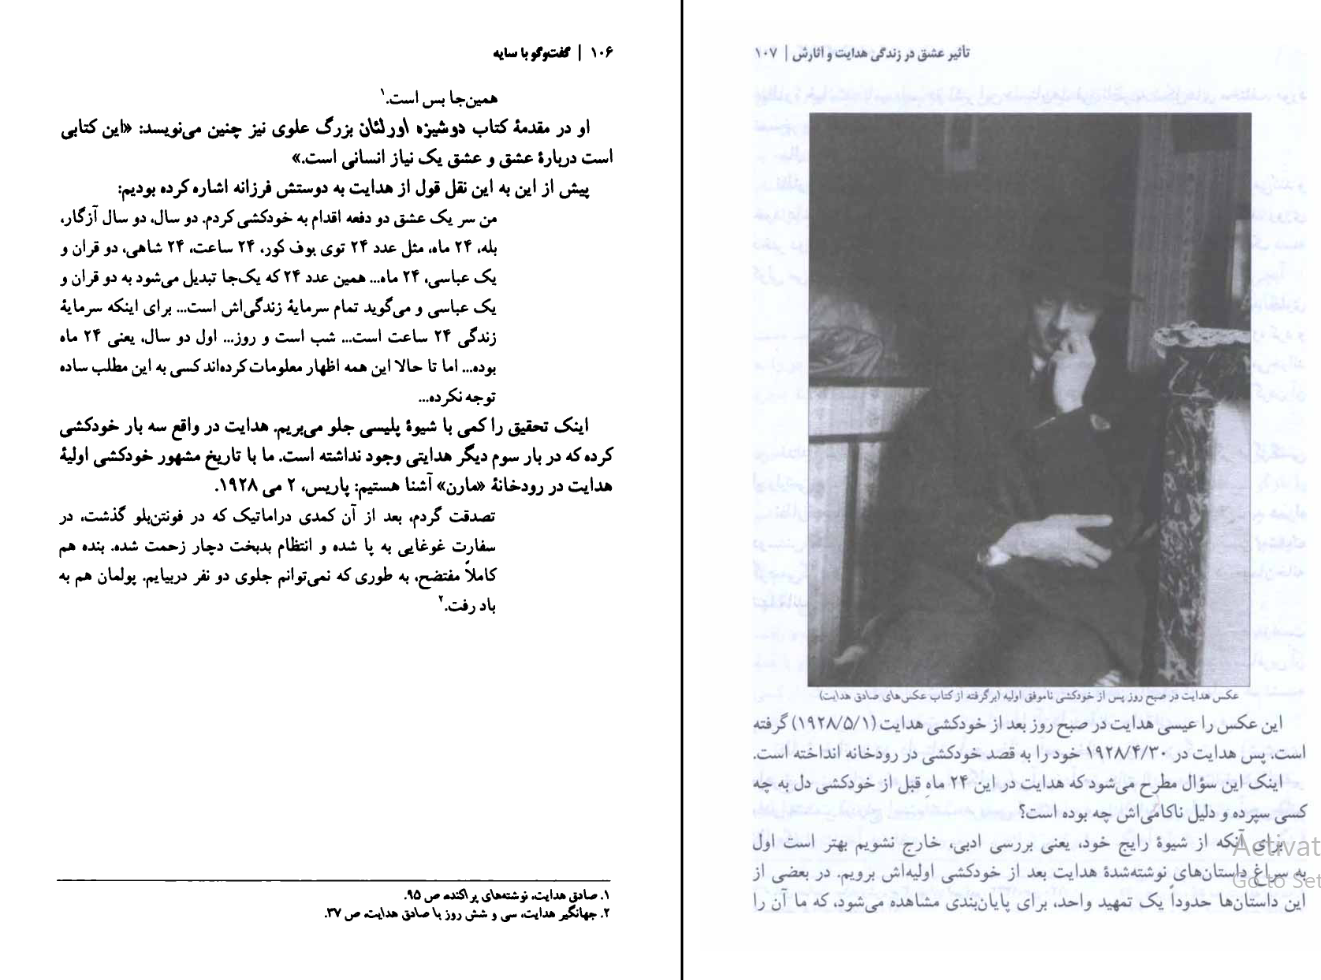 ۱۰۶ | گفت‌وگو با سایه
همین‌جا بس است.۱
او در مقدمهٔ کتاب دوشیزه اورلئان بزرگ علوی نیز چنین می‌نویسد: «این کتابی
است دربارهٔ عشق و عشق یک نیاز انسانی است.»
پیش از این به این نقل قول از هدایت به دوستش فرزانه اشاره کرده بودیم:
من سر یک عشق دو دفعه اقدام به خودکشی کردم. دو سال، دو سال آزگار،
بله، ۲۴ ماه، مثل عدد ۲۴ توی بوف کور، ۲۴ ساعت، ۲۴ شاهی، دو قران و
یک عباسی، ۲۴ ماه... همین عدد ۲۴ که یک‌جا تبدیل می‌شود به دو قران و
یک عباسی و می‌گوید تمام سرمایهٔ زندگی‌اش است... برای اینکه سرمایهٔ
زندگی ۲۴ ساعت است... شب است و روز... اول دو سال، یعنی ۲۴ ماه
بوده... اما تا حالا این همه اظهار معلومات کرده‌اند کسی به این مطلب ساده
توجه نکرده...
اینک تحقیق را کمی با شیوهٔ پلیسی جلو می‌بریم. هدایت در واقع سه بار خودکشی
کرده که در بار سوم دیگر هدایتی وجود نداشته است. ما با تاریخ مشهور خودکشی اولیهٔ
هدایت در رودخانهٔ «مارن» آشنا هستیم: پاریس، ۲ می ۱۹۲۸.
تصدقت گردم، بعد از آن کمدی دراماتیک که در فونتن‌بلو گذشت، در
سفارت غوغایی به پا شده و انتظام بدبخت دچار زحمت شده. بنده هم
کاملاً مفتضح، به طوری که نمی‌توانم جلوی دو نفر دربیایم. پولمان هم به
باد رفت.۲
۱. صادق هدایت، نوشته‌های پراکنده، ص ۹۵.
۲. جهانگیر هدایت، سی و شش روز با صادق هدایت، ص ۳۷.
تأثیر عشق در زندگی هدایت و آثارش | ۱۰۷
عکس هدایت در صبح روز پس از خودکشی ناموفق اولیه (برگرفته از کتاب عکس‌های صادق هدایت)
این عکس را عیسی هدایت در صبح روز بعد از خودکشی هدایت (۱۹۲۸/۵/۱) گرفته
است. پس هدایت در ۱۹۲۸/۴/۳۰ خود را به قصد خودکشی در رودخانه انداخته است.
اینک این سؤال مطرح می‌شود که هدایت در این ۲۴ ماهِ قبل از خودکشی دل به چه
کسی سپرده و دلیل ناکامی‌اش چه بوده است؟
برای آنکه از شیوهٔ رایج خود، یعنی بررسی ادبی، خارج نشویم بهتر است اول
به سراغ داستان‌های نوشته‌شدهٔ هدایت بعد از خودکشی اولیه‌اش برویم. در بعضی از
این داستان‌ها حدوداً یک تمهید واحد، برای پایان‌بندی مشاهده می‌شود، که ما آن را
Activat
Go to Set